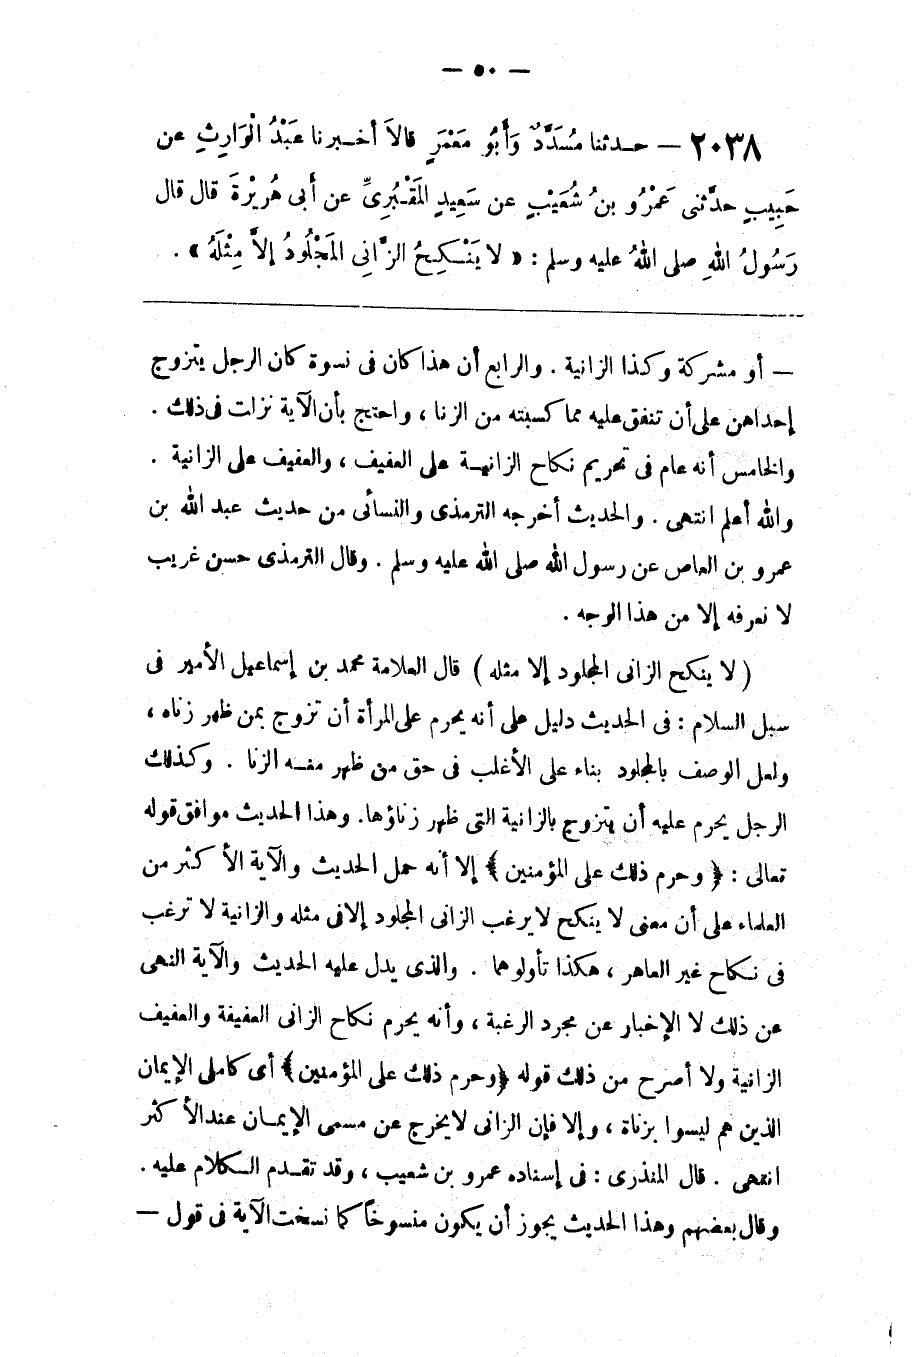 — ٥٠ —
٢٠٣٨ — حدثنا مُسَدَّدٌ وَأَبُو مَعْمَرٍ قالاَ أخبرنا عَبْدُ الْوَارِثِ عن
حَبِيبٍ حدَّثنى عَمْرُو بنُ شُعَيْبٍ عن سَعِيدٍ المَقْبُرِىِّ عن أَبى هُرَيْرةَ قال قال
رَسُولُ اللهِ صلى اللهُ عليه وسلم : « لا يَنْكِحُ الزَّانِى المَجْلُودُ إلاَّ مِثْلَهُ » .
— أو مشركة وكذا الزانية . والرابع أن هذا كان فى نسوة كان الرجل يتزوج
إحداهن على أن تنفق عليه مما كسبته من الزنا ، واحتج بأن الآية نزلت فى ذلك .
والخامس أنه عام فى تحريم نكاح الزانية على العفيف ، والعفيف على الزانية .
والله أعلم انتهى . والحديث أخرجه الترمذى والنسائى من حديث عبد الله بن
عمرو بن العاص عن رسول الله صلى الله عليه وسلم . وقال الترمذى حسن غريب
لا نعرفه إلا من هذا الوجه .
( لا ينكح الزانى المجلود إلا مثله ) قال العلامة محمد بن إسماعيل الأمير فى
سبل السلام : فى الحديث دليل على أنه يحرم على المرأة أن تزوج بمن ظهر زناه ،
ولعل الوصف بالمجلود بناء على الأغلب فى حق من ظهر منه الزنا . وكذلك
الرجل يحرم عليه أن يتزوج بالزانية التى ظهر زناؤها. وهذا الحديث موافق قوله
تعالى : ﴿ وحرم ذلك على المؤمنين ﴾ إلا أنه حمل الحديث والآية الأكثر من
العلماء على أن معنى لا ينكح لا يرغب الزانى المجلود إلا فى مثله والزانية لا ترغب
فى نكاح غير العاهر ، هكذا تأولوهما . والذى يدل عليه الحديث والآية النهى
عن ذلك لا الإخبار عن مجرد الرغبة ، وأنه يحرم نكاح الزانى العفيفة والعفيف
الزانية ولا أصرح من ذلك قوله ﴿وحرم ذلك على المؤمنين﴾ أى كاملى الإيمان
الذين هم ليسوا بزناة ، وإلا فإن الزانى لا يخرج عن مسمى الإيمان عند الأكثر
انتهى . قال المنذرى : فى إسناده عمرو بن شعيب ، وقد تقدم الكلام عليه .
وقال بعضهم وهذا الحديث يجوز أن يكون منسوخاً كما نسخت الآية فى قول —